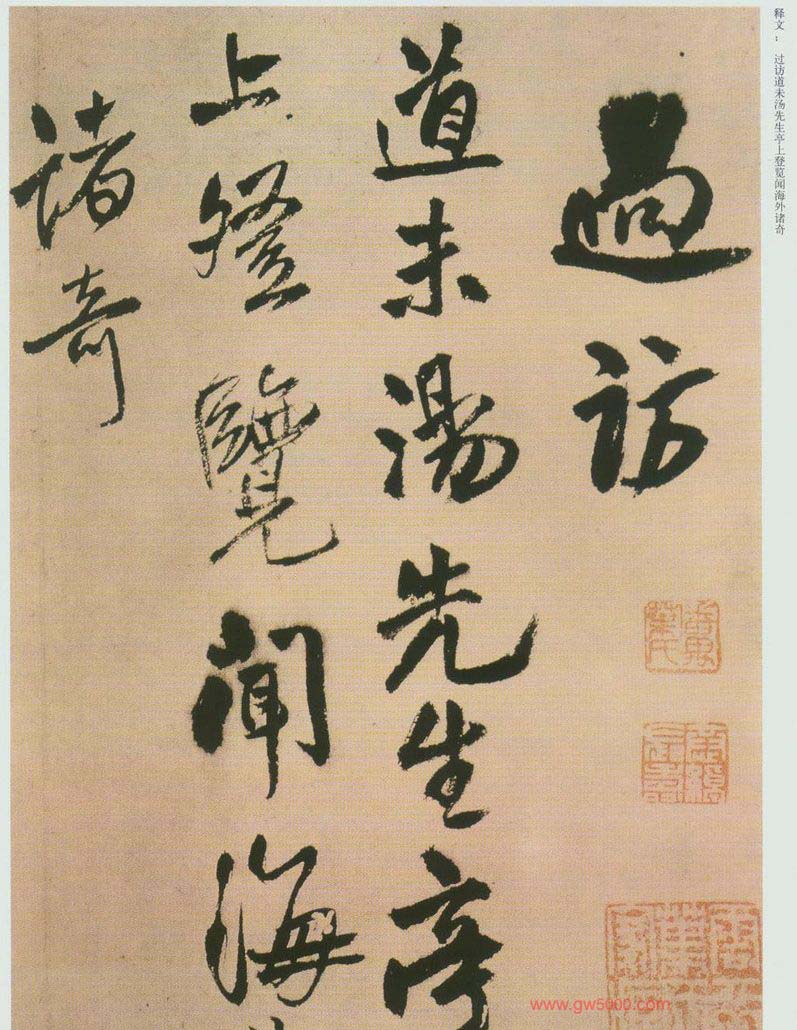 释文： 过访道未汤先生亭上登览闻海外诸奇
過訪
道未湯先生亭
上登覽聞海
諸奇
www.gw5000.com